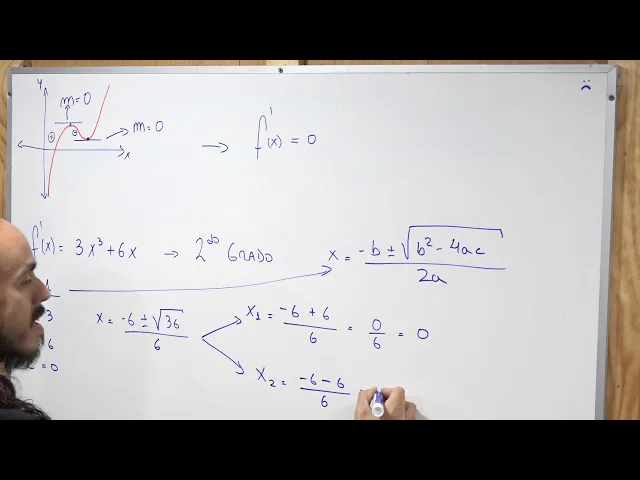 y
m=0
⊕ ⊖
m=0
x
→ f'(x) = 0
f'(x) = 3x³+6x → 2do GRADO
x = -b ± √b² - 4ac / 2a
1
3
6
= 0
x = -6 ± √36 / 6
x₁ = -6 + 6 / 6 = 0/6 = 0
x₂ = -6 - 6 / 6